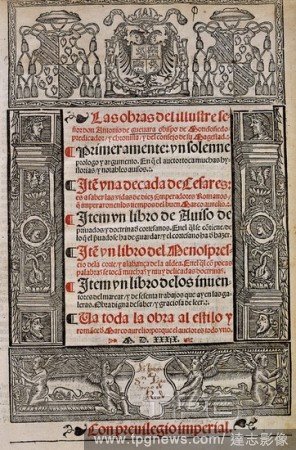 Las obras del illustre se
ñor don Antonio de gueuara obispo de Mondoñedo
predicador / y chronista / y del consejo de su Magestad.
Primeramente: vn solenne
prologo y argumento. En q̃l el auctor toca muchas hy
storias / y notables auisos.
Itẽ vna decada de Cesares:
es a saber las vidas de diez Emperadores Romanos
Item vn libro de Auiso de
priuados / y doctrinas cortesanos.
lo q̃ el priuado se ha de guardar / y el cortesano ha d̃ hazer.
Itẽ vn libro del Menospre
cio dela corte / y alabança dela aldea. En el q̃l cõ pocas
palabras se tocã muchas y muy delicadas doctrinas.
Item vn libro delos inuen
tores del marear / y de sesenta trabajos que ay en las ga
leras. Obra digna de saber / y graciosa de leer.
Va toda la obra al estilo y
romãce d̃ Marco aurelio: porque el auctor es todo vno.
M. D. XXXIX.
Con preuilegio imperial.
www.tpgnews.com 達志影像